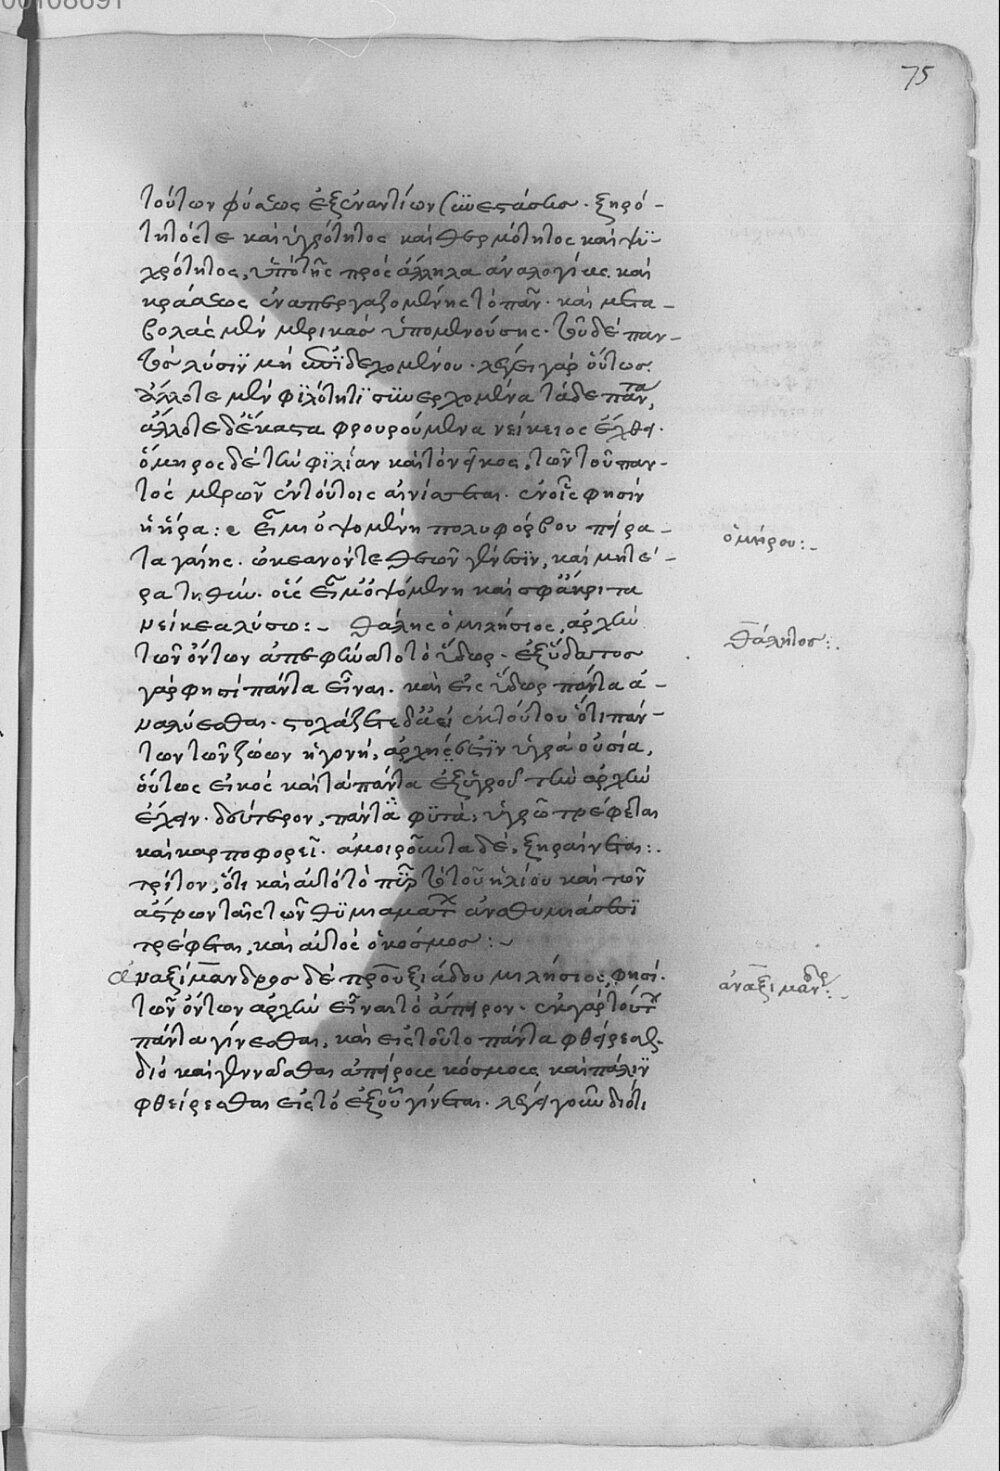 75
τούτων φύσεως ἐξ ἐναντίων συνεστάσθαι· ξηρό-
τητός τε καὶ ὑγρότητος καὶ θερμότητος καὶ ψυ-
χρότητος, ὑπὸ τῆς πρὸς ἄλληλα ἀναλογίας καὶ
κράσεως ἐναπεργαζομένης τὸ πᾶν· καὶ μετα-
βολὰς μὲν μερικὰς ὑπομενούσης· τοῦ δὲ παν-
τὸς λύσιν μὴ ἐπιδεχομένου· λέγει γὰρ οὕτως·
ἄλλοτε μὲν φιλότητι συνερχόμενα τάδε πάντα,
ἄλλοτε δ' ἕκαστα φρουρούμενα νείκεος ἔχθει·
ὅμηρος δὲ τὴν φιλίαν καὶ τὸν νεῖκος, τῶν τοῦ παν-
τὸς μερῶν ἐν τούτοις αἰνίττεται· ἐν οἷς φησὶν
ἡ ἥρα: εἶμι ὀψομένη πολυφόρβου πείρα-
τα γαίης· ὠκεανόν τε θεῶν γένεσιν, καὶ μητέ-
ρα τηθύν· οἷς εἶμ' ὀψομένη καὶ σφ' ἄκριτα
νείκεα λύσω:- θαλῆς ὁ μιλήσιος, ἀρχὴν
τῶν ὄντων ἀπεφήνατο τὸ ὕδωρ· ἐξ ὕδατος
γάρ φησι πάντα εἶναι· καὶ εἰς ὕδωρ πάντα ἀ-
ναλύεσθαι· στοχάζεται δ' ἀεὶ ἐκ τούτου ὅτι πάν-
των τῶν ζώων ἡ γονή, ἀρχή ἐστιν ὑγρὰ οὐσία,
οὕτως εἰκὸς καὶ τὰ πάντα ἐξ ὑγροῦ τὴν ἀρχὴν
ἔχειν· δεύτερον, πάντα φυτά, ὑγρῷ τρέφεται
καὶ καρποφορεῖ· ἀμοιροῦντα δέ, ξηραίνεται:
τρίτον, ὅτι καὶ αὐτὸ τὸ πῦρ τὸ τοῦ ἡλίου καὶ τῶν
ἄστρων ταῖς τῶν θυμιαμάτων ἀναθυμιάσεσι
τρέφεται, καὶ αὐτὸς ὁ κόσμος:-
ἀναξίμανδρος δὲ πραξιάδου μιλήσιος, φησί·
τῶν ὄντων ἀρχὴν εἶναι τὸ ἄπειρον· ἐκ γὰρ τούτου
πάντα γίνεσθαι, καὶ εἰς τοῦτο πάντα φθείρεσθαι·
διὸ καὶ γεννᾶσθαι ἀπείρους κόσμους καὶ πάλιν
φθείρεσθαι εἰς τὸ ἐξ οὗ γίνεται· λέγει γοῦν διότι
ὁμήρου:-
θάλητος:
ἀναξιμάνδρου:-